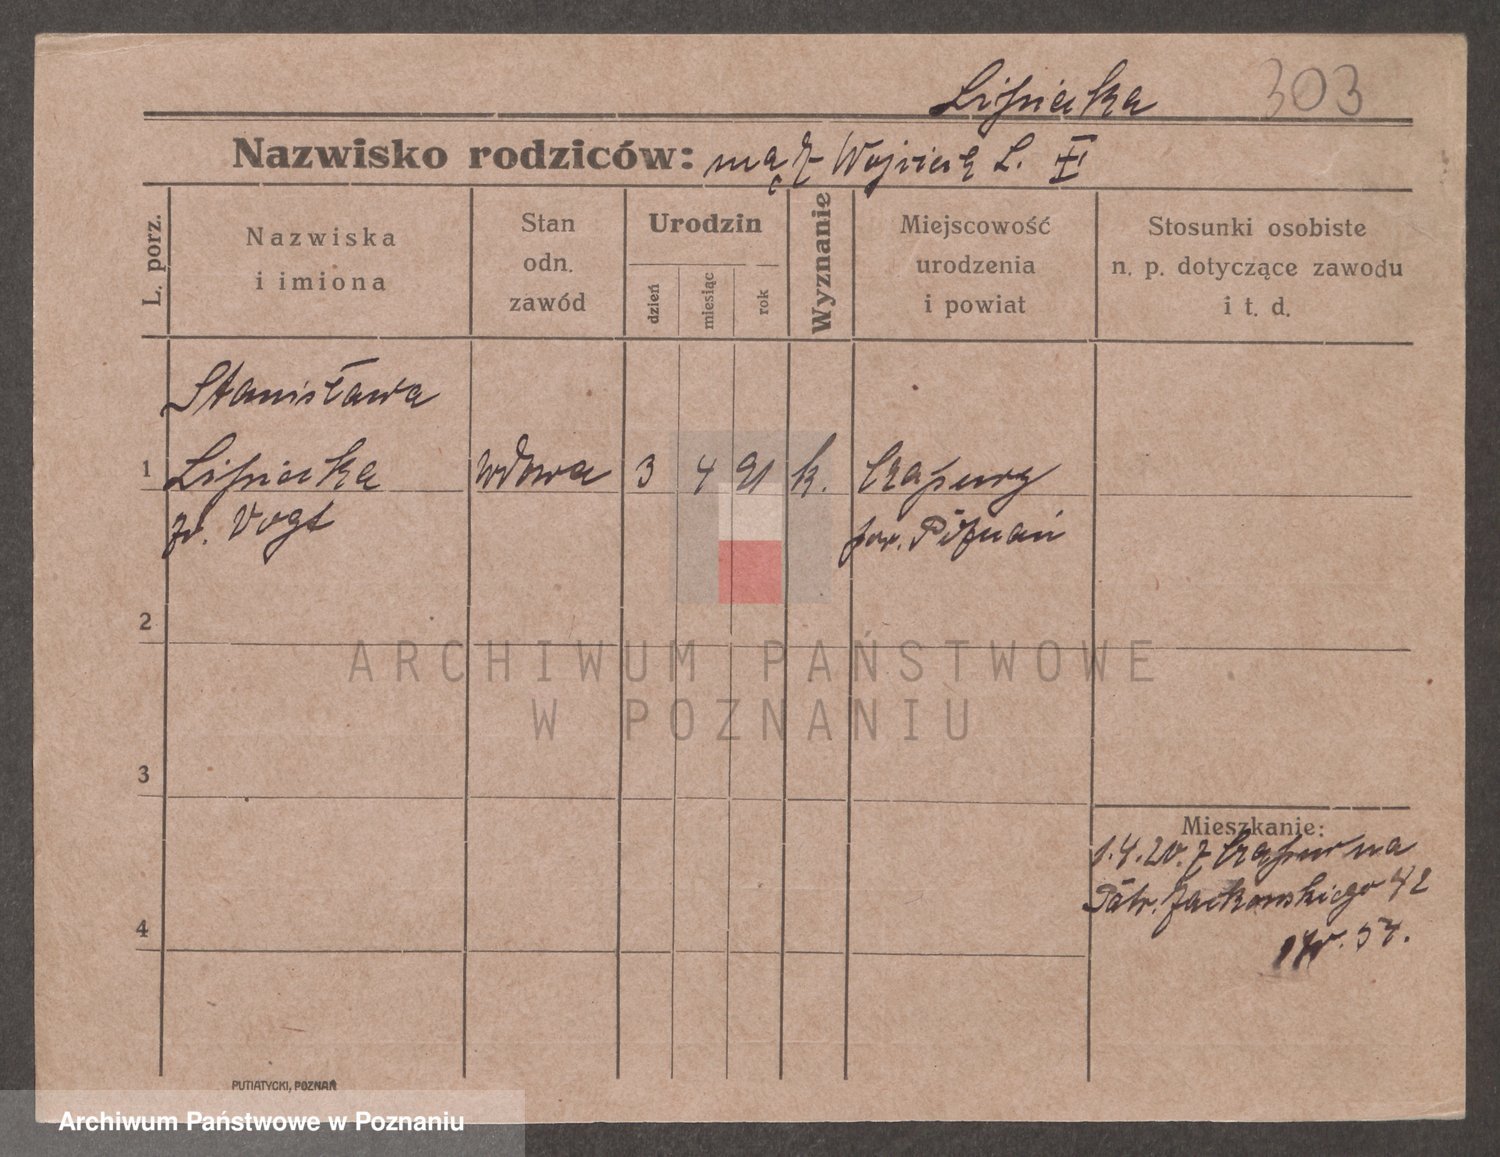 Lisiecka 303
Nazwisko rodziców: mąż Wojciech L.
L. porz.
Nazwiska
i imiona
Stan
odn.
zawód
Urodzin
dzień
miesiąc
rok
Wyznanie
Miejscowość
urodzenia
i powiat
Stosunki osobiste
n. p. dotyczące zawodu
i t. d.
Stanisława
1 Lisiecka wdowa 3 4 91 k. Czapury
Vogt pow. Poznań
2
3
4
Mieszkanie:
1.4.20. z Czapur na
Patr. Jackowskiego 42
PUTIATYCKI, POZNAŃ
ARCHIWUM PAŃSTWOWE
W POZNANIU
Archiwum Państwowe w Poznaniu